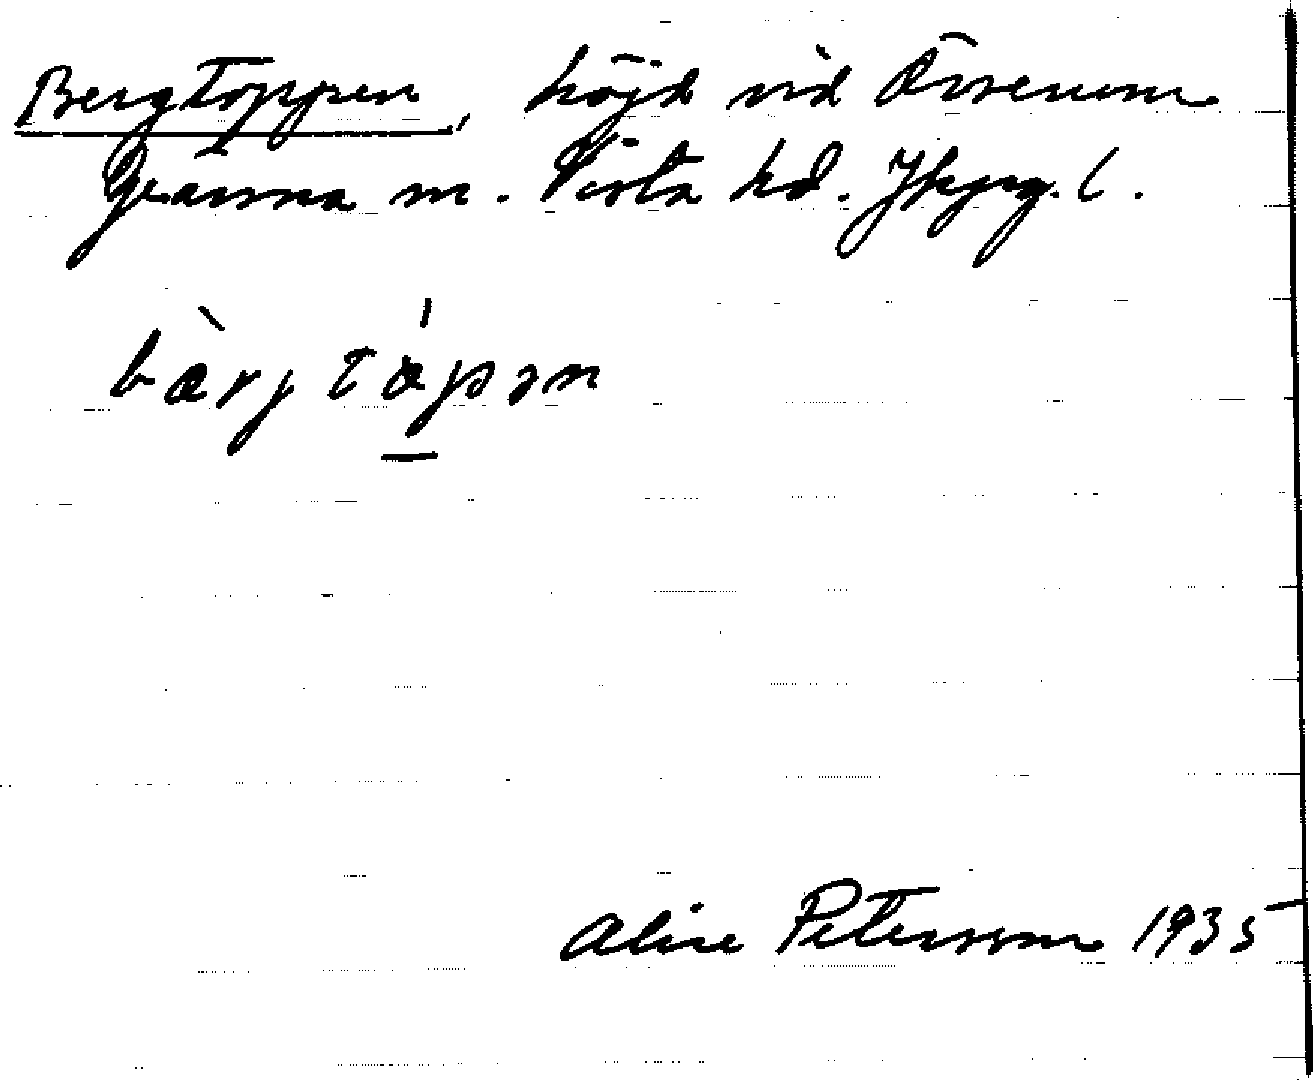 Bergtoppen, höjd vid Örserum
Gränna sn. Vista hd. Jkpg. l.
bærj tåpən
Alice Petersson 1935